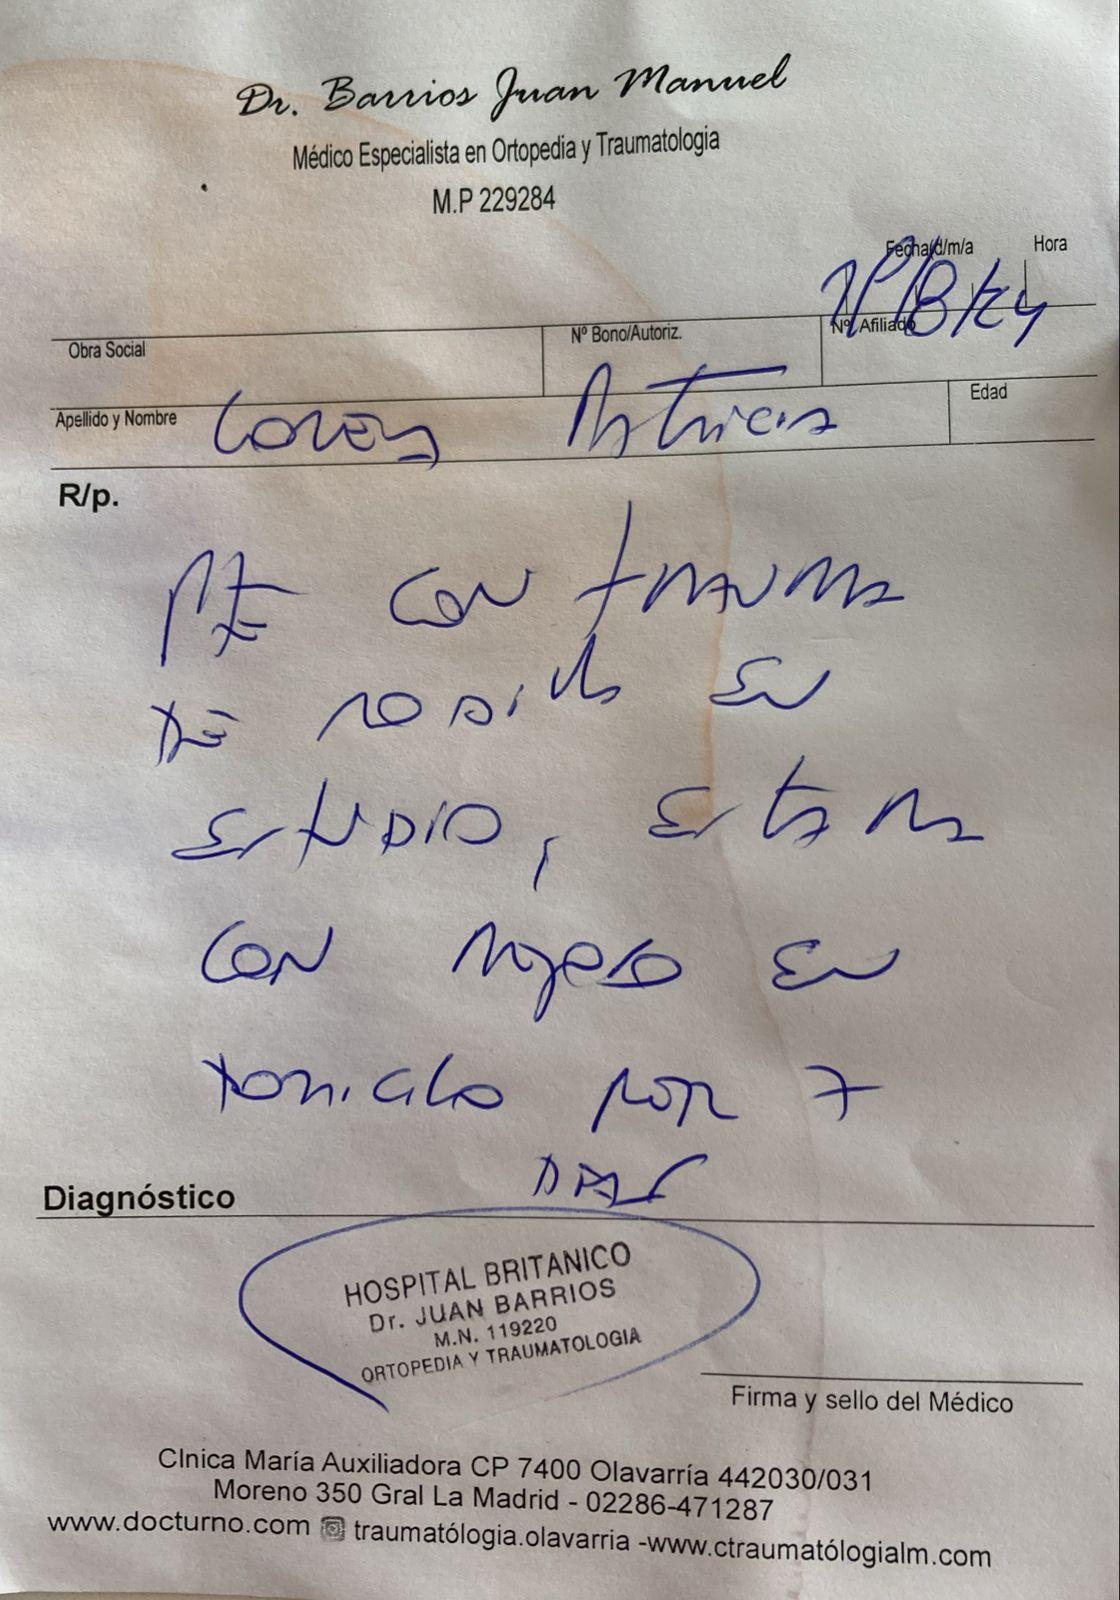 Dr. Barrios Juan Manuel
Médico Especialista en Ortopedia y Traumatologia
M.P 229284
Fecha/d/m/a Hora
/8/24
Obra Social Nº Bono/Autoriz. Nº Afiliado
Apellido y Nombre Patricia Edad
R/p.
Pte con trauma
de rodilla en
estudio, estara
con reposo en
domicilio por 7
dias
Diagnóstico
HOSPITAL BRITANICO
Dr. JUAN BARRIOS
M.N. 119220
ORTOPEDIA Y TRAUMATOLOGIA
Firma y sello del Médico
Clnica María Auxiliadora CP 7400 Olavarría 442030/031
Moreno 350 Gral La Madrid - 02286-471287
www.docturno.com traumatólogia.olavarria -www.ctraumatólogialm.com